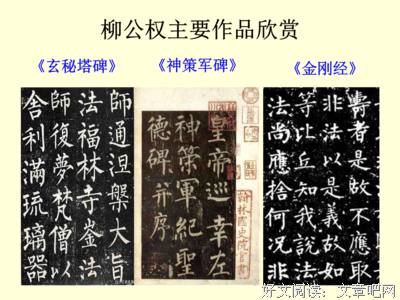 柳公权主要作品欣赏
《玄秘塔碑》
《神策军碑》
《金刚经》
師通涅槃大旨
法福林寺崟法
師復夢梵僧以
舍利滿琉璃器
皇帝巡幸左
神策軍紀聖
德碑并序
翰林國史院官書
壽者是故不應取
非法以是義故如
等比丘知我說法
法尚應捨何況非
好文阅读：文章吧网